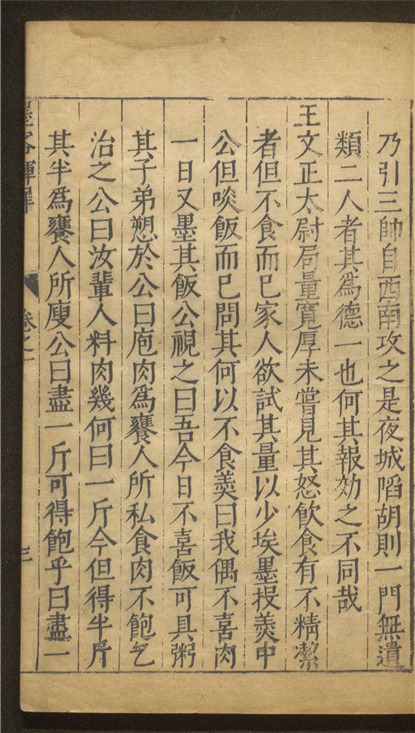 乃引三帥自西南攻之是夜城陷胡則一門無遺
類二人者其爲德一也何其報効之不同哉
王文正太尉局量寬厚未嘗見其怒飲食有不精潔
者但不食而已家人欲試其量以少埃墨投羹中
公但啖飯而已問其何以不食羹曰我偶不喜肉
一日又墨其飯公視之曰吾今日不喜飯可具粥
其子弟愬於公曰庖肉爲饔人所私食肉不飽乞
治之公曰汝輩人料肉幾何曰一斤今但得半斤
其半爲饔人所廋公曰盡一斤可得飽乎曰盡一
墨客揮犀 卷之一 三